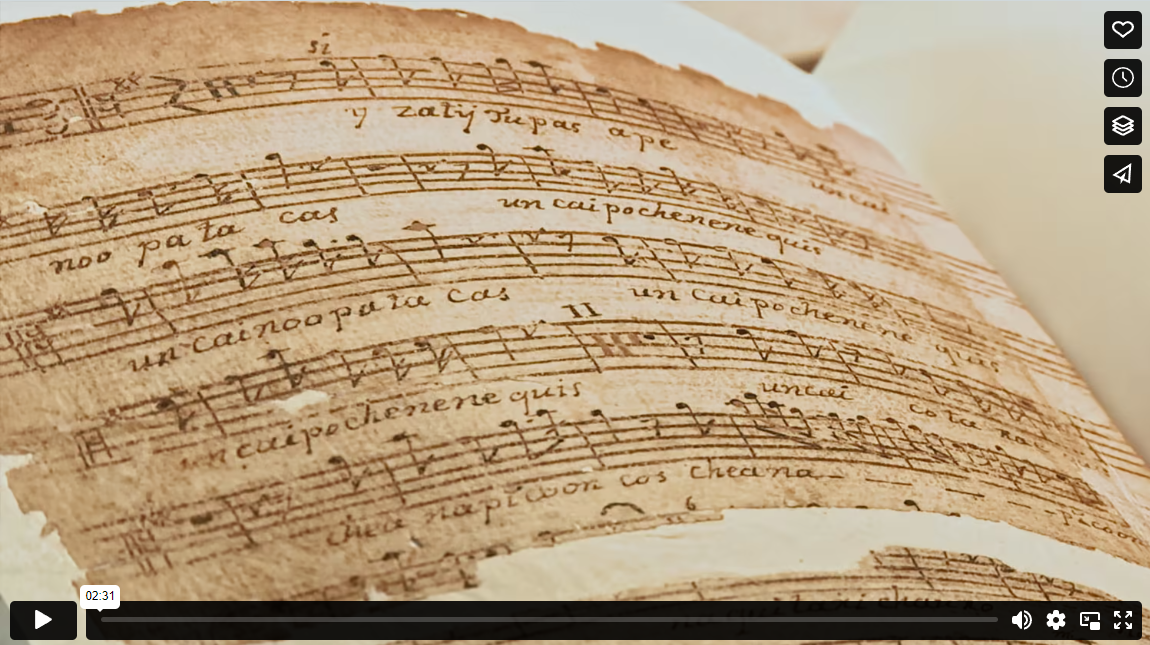 si
y zatij Tupas ape
un cai
noo pa ta cas un caipochenene quis
un cainoopata cas un caipochenene quis
II
un caipochenene quis un cai
chea napicoon cos cheana picoon
6
02:31